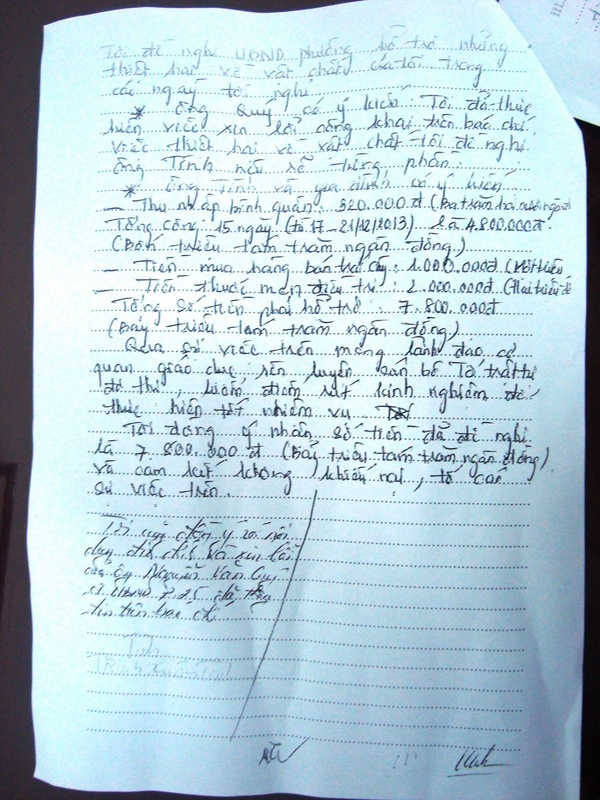 Tôi đề nghị UBND phường hỗ trợ những
thiệt hại về vật chất của tôi trong
các ngày tôi nghỉ
* Ông Quý có ý kiến: Tôi đã thực
hiện việc xin lỗi công khai trên báo chí.
Việc thiệt hại về vật chất tôi đề nghị
ông Tình nêu rõ từng phần:
* Ông Tình và gia đình có ý kiến:
- Thu nhập bình quân: 320.000.đ (Ba trăm hai mươi ngàn đ)
Tổng cộng 15 ngày (từ 17 - 21/12/2013) là 4.800.000đ
(Bốn triệu tám trăm ngàn đồng)
- Tiền mua hàng bán trái cây: 1.000.000đ (Một triệu
- Tiền thuốc men điều trị: 2.000.000đ (Hai triệu đ
Tổng số tiền phải hỗ trợ: 7.800.000đ
(Bảy triệu tám trăm ngàn đồng)
Qua sự việc trên mong lãnh đạo cơ
quan giáo dục, rèn luyện cán bộ Tổ trật tự
đô thị, kiểm điểm rút kinh nghiệm để
thực hiện tốt nhiệm vụ
Tôi đồng ý nhận số tiền đã đề nghị
là 7.800.000 đ (Bảy triệu tám trăm ngàn đồng)
và cam kết không khiếu nại, tố cáo
sự việc trên.
Tôi đồng ý với nội
dung xin lỗi
của ông Nguyễn Văn Quý
UBND P.25 đã đăng
tin trên báo chí
Tình